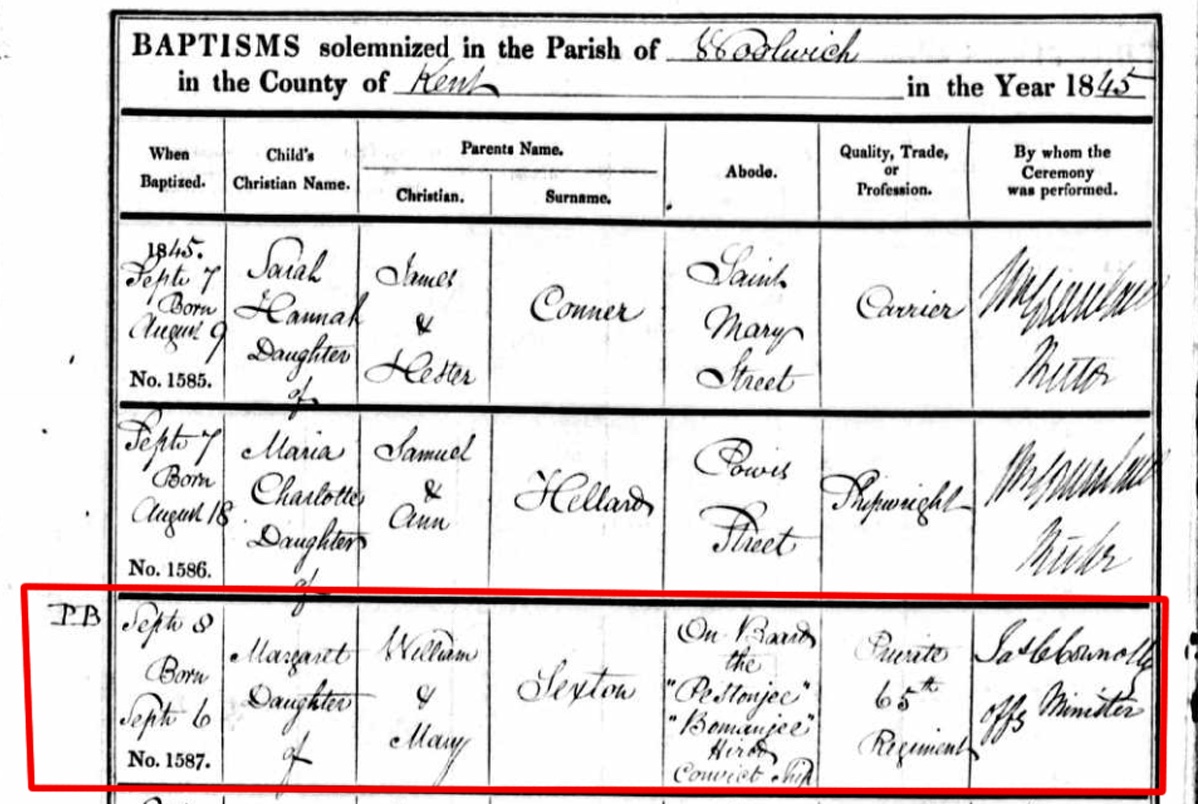 BAPTISMS solemnized in the Parish of Woolwich
in the County of Kent in the Year 1845
When Baptized.
Child's Christian Name.
Parents Name.
Christian.
Surname.
Abode.
Quality, Trade, or Profession.
By whom the Ceremony was performed.
1845.
Septr 7
Born
August 9
No. 1585.
Sarah
Hannah
Daughter
of
James
&
Hester
Conner
Saint
Mary
Street
Carrier
Rector
Septr 7
Born
August 18
No. 1586.
Maria
Charlotte
Daughter
of
Samuel
&
Ann
Hellard
Powis
Street
Shipwright
Rector
P.B
Septr 8
Born
Septr 6
No. 1587.
Margaret
Daughter
of
William
&
Mary
Sexton
On Board
the
"Pestonjee"
"Bomanjee"
Hired
Convict Ship
Private
65th
Regiment
Jas C Connolly
offg Minister